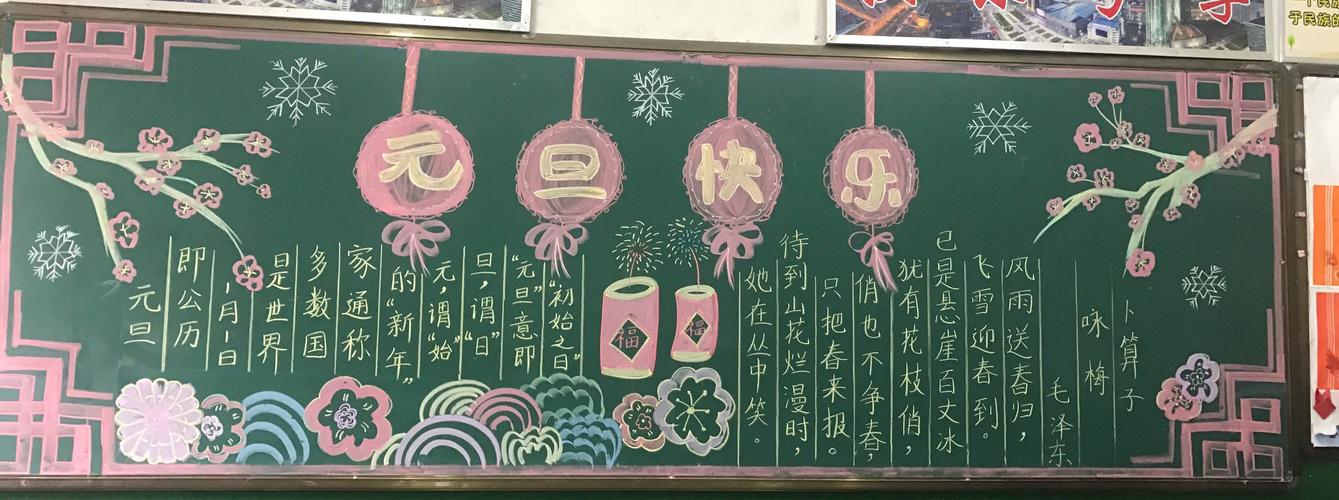 元旦快乐
元旦
即公历
一月一日
是世界
多数国
家通称
的“新年”
元，谓“始”
旦，谓“日”
“元旦”意即
“初始之日”
福
福
卜算子
咏梅
毛泽东
风雨送春归，
飞雪迎春到。
已是悬崖百丈冰
犹有花枝俏，
俏也不争春，
只把春来报。
待到山花烂漫时，
她在丛中笑。
于民族的